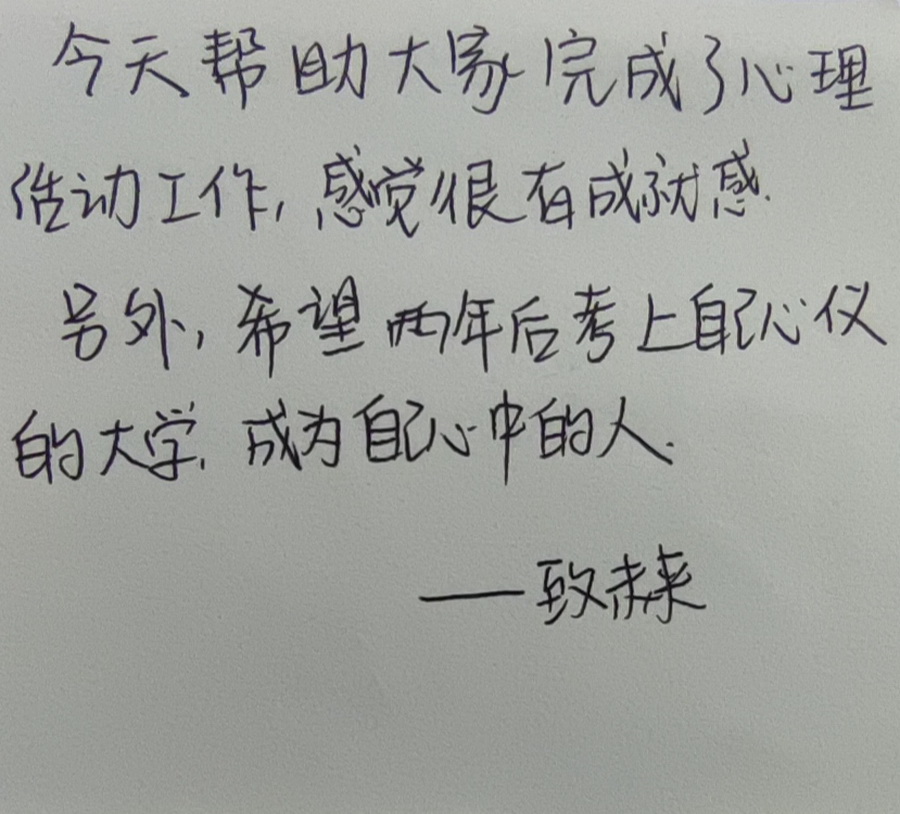 今天帮助大家完成了心理
活动工作,感觉很有成就感.
另外,希望两年后考上自己心仪
的大学,成为自己心中的人.
——致未来